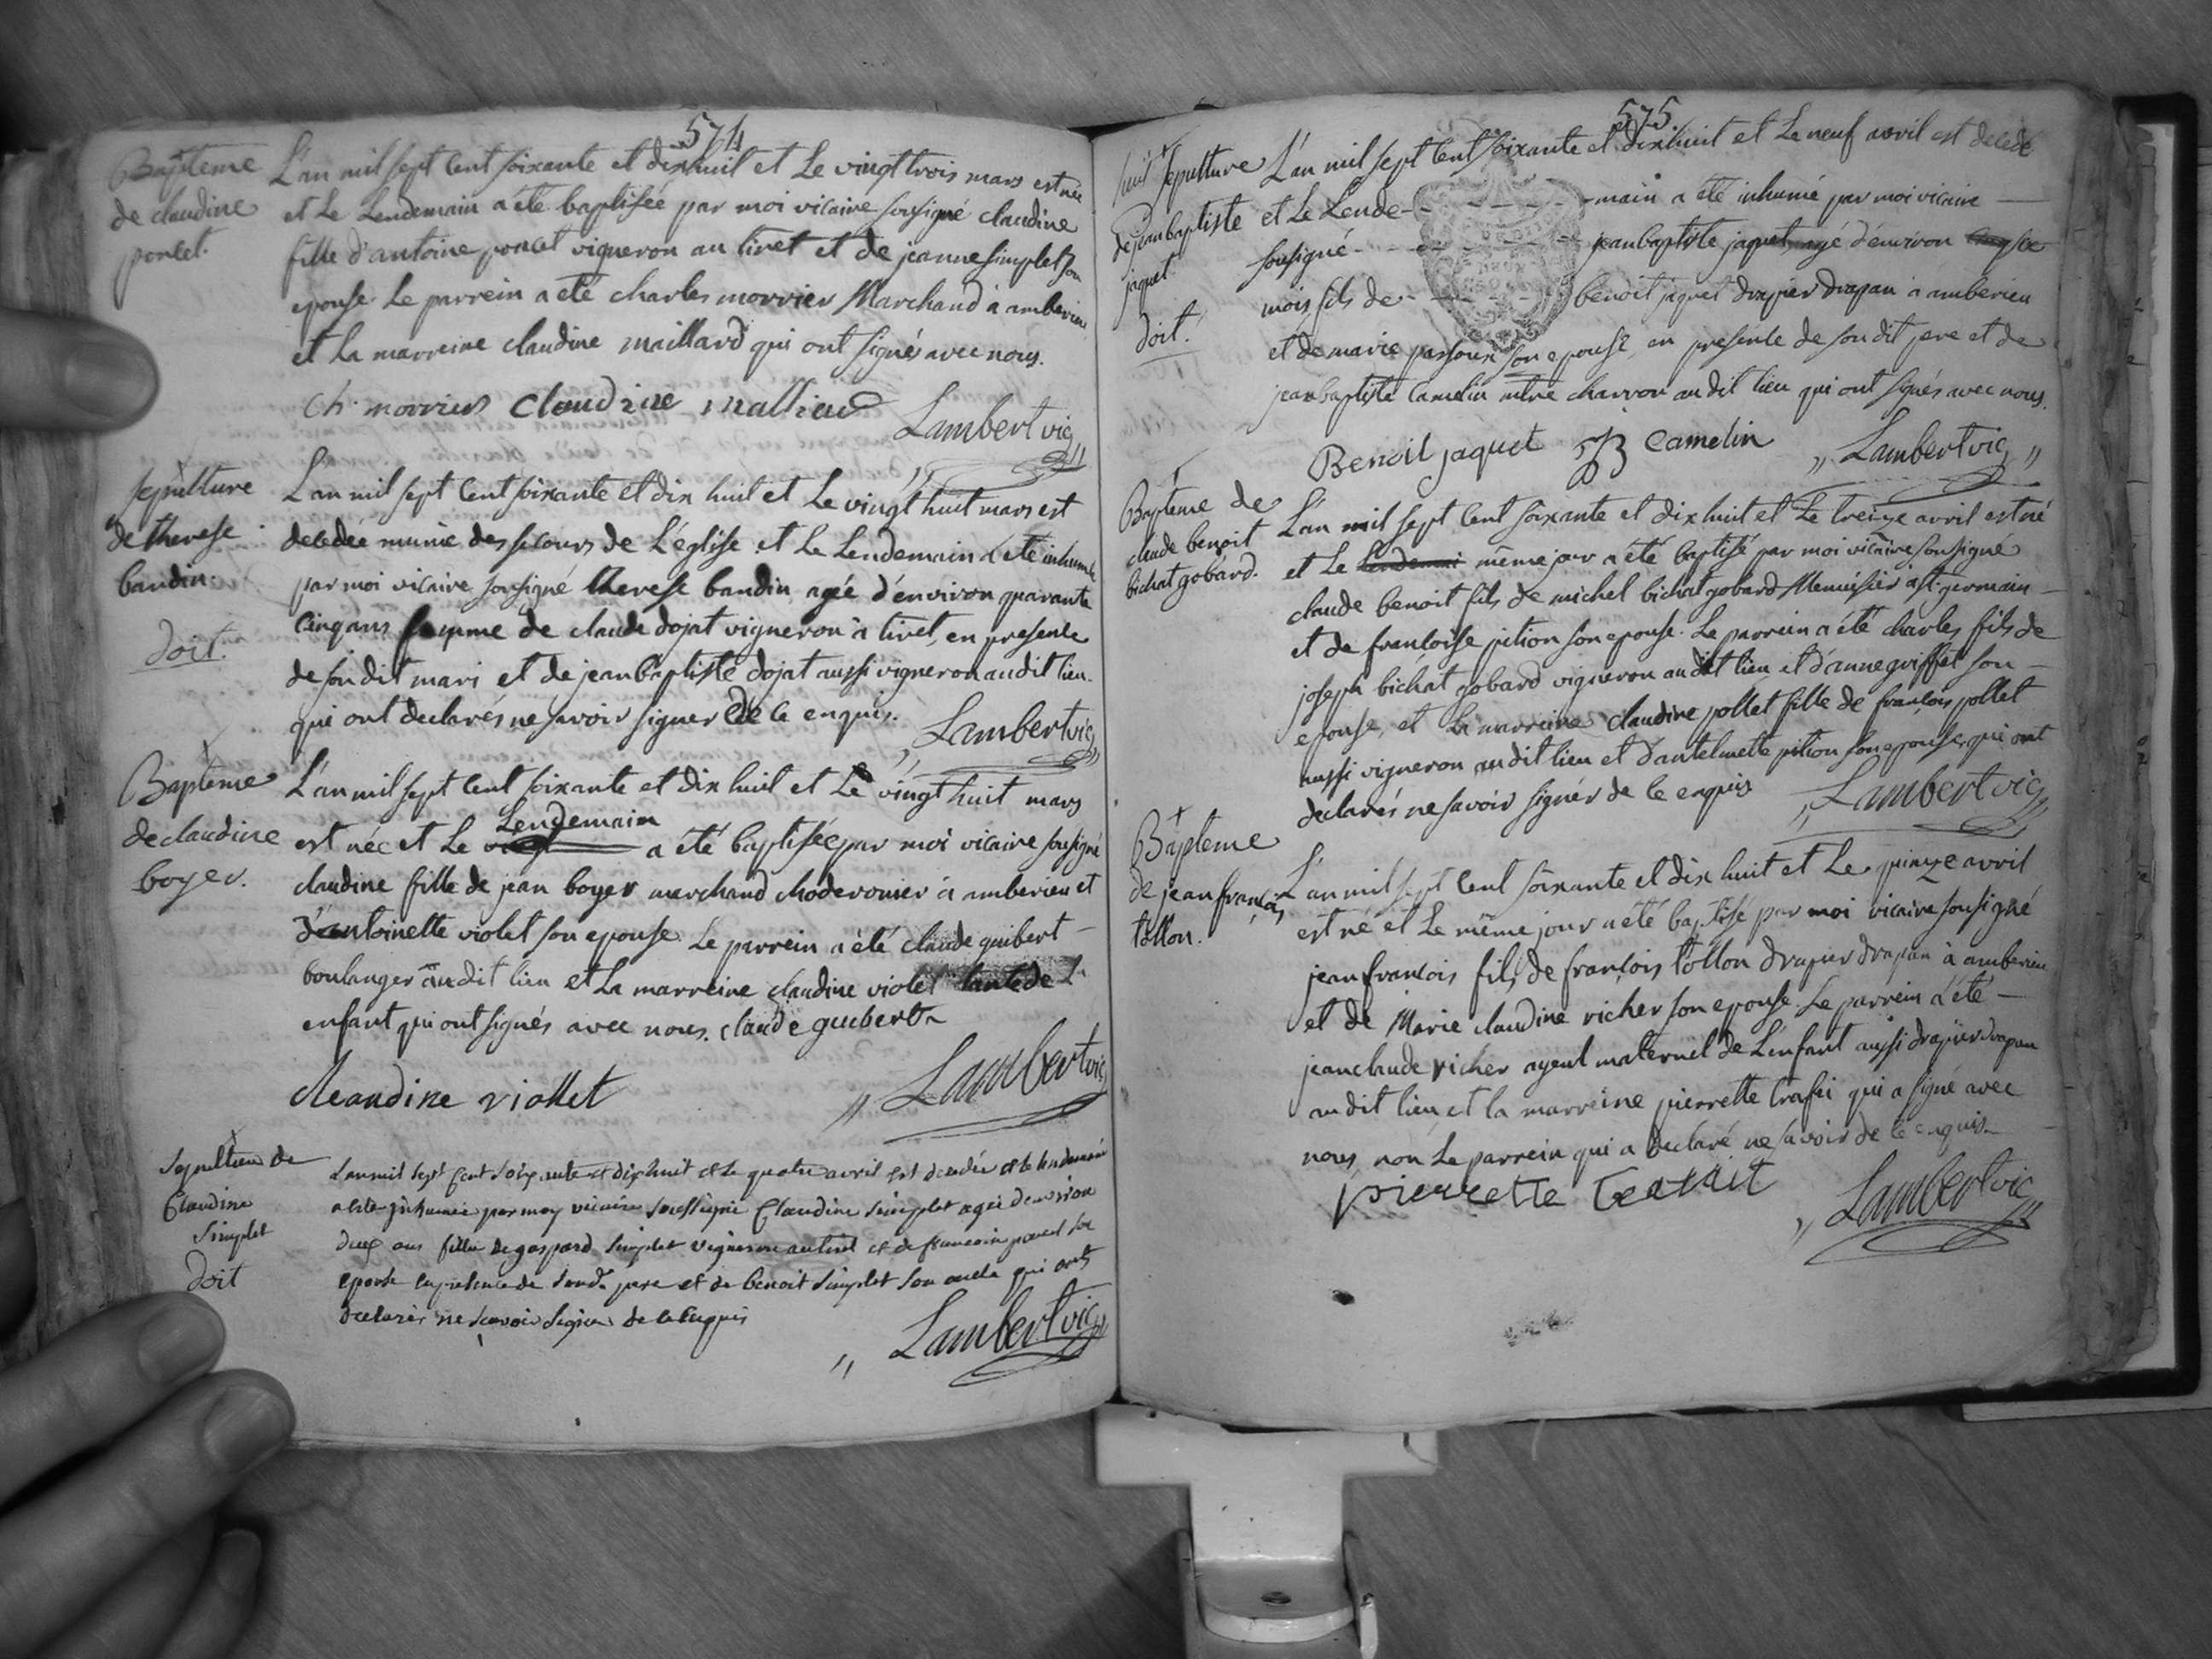 574
Bapteme
de claudine
poncet.
L'an mil sept cent soixante et dix huit et Le vingt trois mars est née
et Le Lendemain a été baptisée par moi vicaire sousigné claudine
fille d'antoine poncet vigneron au tiret et de jeanne simplet son
epouse. Le parrein a été charles morrier Marchand à amberieu
et La marreine claudine maillard qui ont signés avec nous.
Ch. morrier Claudine mallied
Lambert vic
sepulture
de therese
baudin.
doit.
L'an mil sept cent soixante et dix huit et Le vingt huit mars est
decedée munie des secours de L'église et Le Lendemain a été inhumée
par moi vicaire sousigné therese baudin agée d'énviron quarante
cinq ans femme de claude dojat vigneron à tiret, en presence
de son dit mari et de jean baptiste dojat aussi vigneron audit lieu
qui ont declarés ne savoir signer de ce enquis.
Lambert vic
Bapteme
de claudine
boyer.
L'an mil sept cent soixante et dix huit et Le vingt huit mars
est née et Le Lendemain a été baptisée par moi vicaire sousigné
claudine fille de jean boyer marchand choderonier à amberieu et
d'antoinette violet son epouse. Le parrein a été claude guibert
boulanger audit lieu et La marreine claudine violet tante de L'
enfant qui ont signés avec nous. claude guibert
cleaudine viollet
Lambert vic
Sepulture de
Claudine
Simplet
doit
L'an mil sept cent soixante et dix huit et le quatre avril est decedée et le lendemain
a été inhumée par moy vicaire soussigné Claudine simplet agée d'environ
deux ans fille de gaspard simplet vigneron au tiret et de francoise poncet son
epouse en presence de sond. pere et de benoit simplet son oncle qui ont
declarés ne scavoir signer de ce enquis
Lambert vic
575
sepulture
de jean baptiste
jaquet
doit.
L'an mil sept cent soixante et dix huit et Le neuf avril est decedé
et Le Lende- main a été inhumé par moi vicaire
sousigné jean baptiste jaquet, agé d'énviron
mois, fils de benoit jaquet drapier drapan à amberieu
et de marie son epouse, en presence de son dit pere et de
jean baptiste Camelin mtre charron audit lieu qui ont signés avec nous.
Benoit jaquet JB Camelin Lambert vic
Bapteme de
claude benoit
bichat gobard.
L'an mil sept cent soixante et dix huit et Le treize avril est né
et Le même jour a été baptisé par moi vicaire sousigné
claude benoit fils de michel bichat gobard Menuisier à st. germain
et de françoise pition son epouse. Le parrein a été charles fils de
joseph bichat gobard vigneron audit lieu et d'anne griffet son
epouse, et La marreine claudine pollet fille de françois pollet
aussi vigneron audit lieu et d'antelmette pition son epouse qui ont
declarés ne savoir signer de ce enquis
Lambert vic
Bapteme
de jean françois
tollon.
L'an mil sept cent soixante et dix huit et Le quinze avril
est né et Le même jour a été baptisé par moi vicaire sousigné
jean françois fils de françois tollon drapier drapan à amberieu
et de Marie claudine richer son epouse. Le parrein a été
jean claude richer ayeul maternel de L'enfant aussi drapier drapan
audit lieu, et la marreine pierrette qui a signé avec
nous, non Le parrein qui a declaré ne savoir de ce enquis
pierrette
Lambert vic